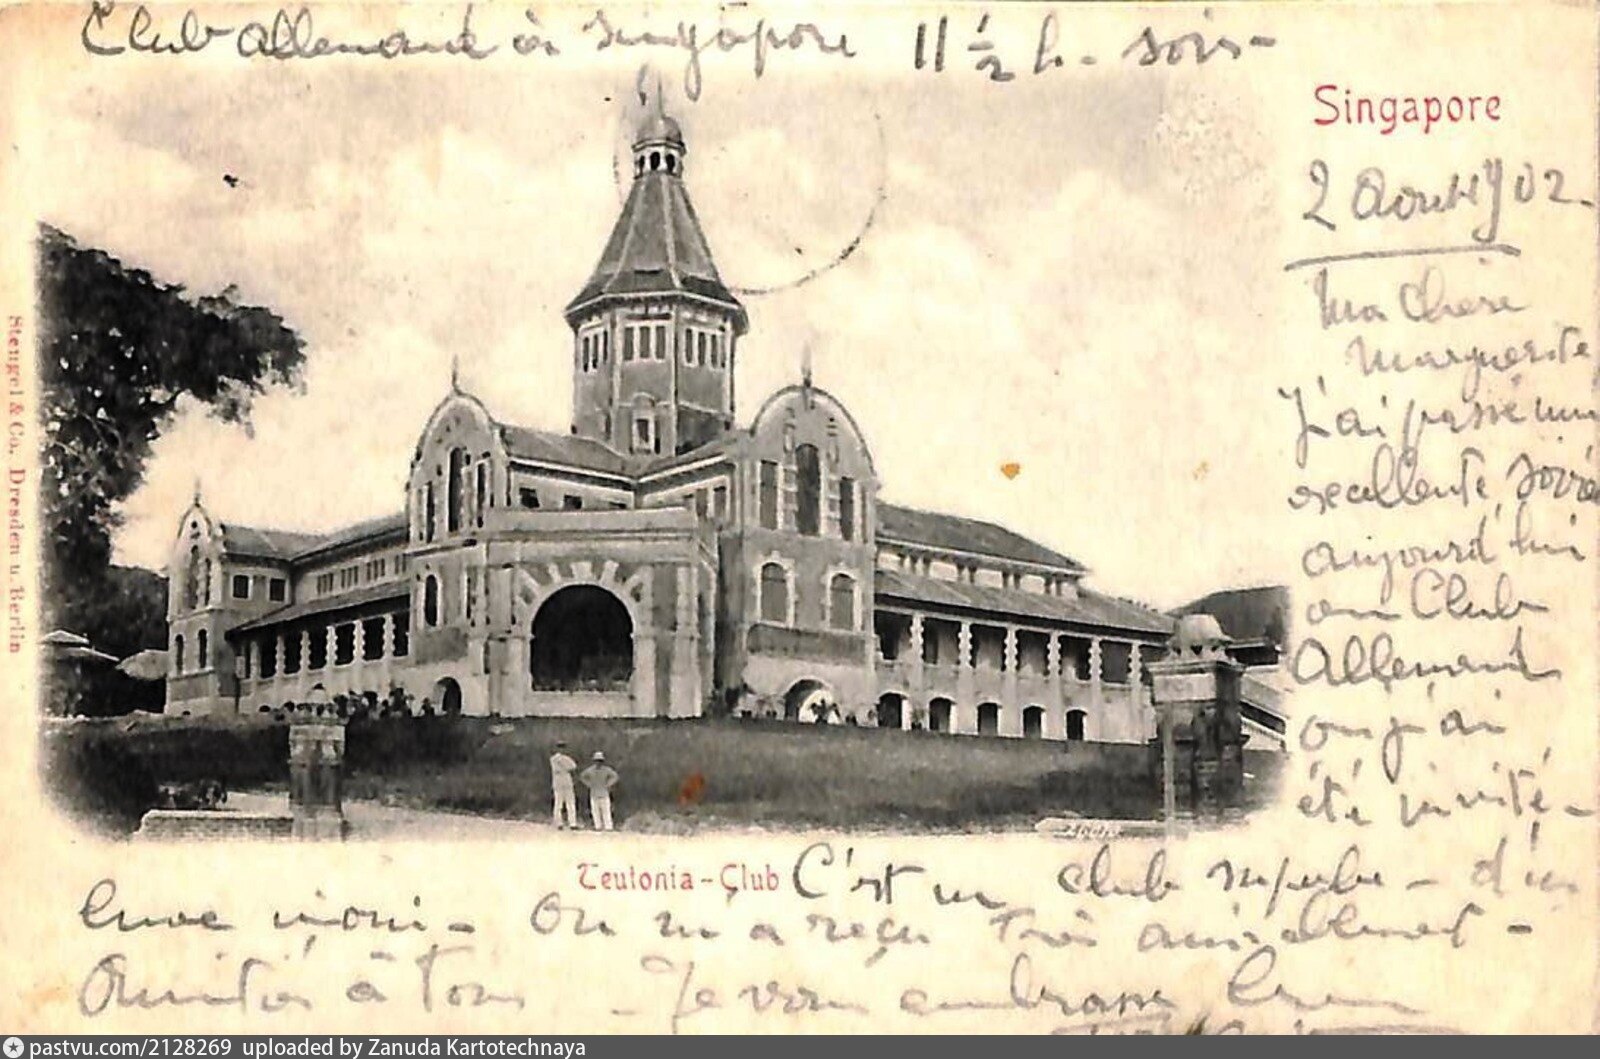 Club allemand à Singapore 11 ½ h. soir -
Singapore
2 Aout 1902.
Ma chère
Marguerite,
J'ai passé une
excellente soirée
aujourd'hui
au Club
Allemand
ou j'ai
été invité -
Stengel & Co., Dresden u. Berlin
Teutonia-Club
C'est un club superbe - d'un
luxe inoui - On m'a reçu très aimablement -
Amitiés à tous - Je vous embrasse bien
pastvu.com/2128269 uploaded by Zanuda Kartotechnaya